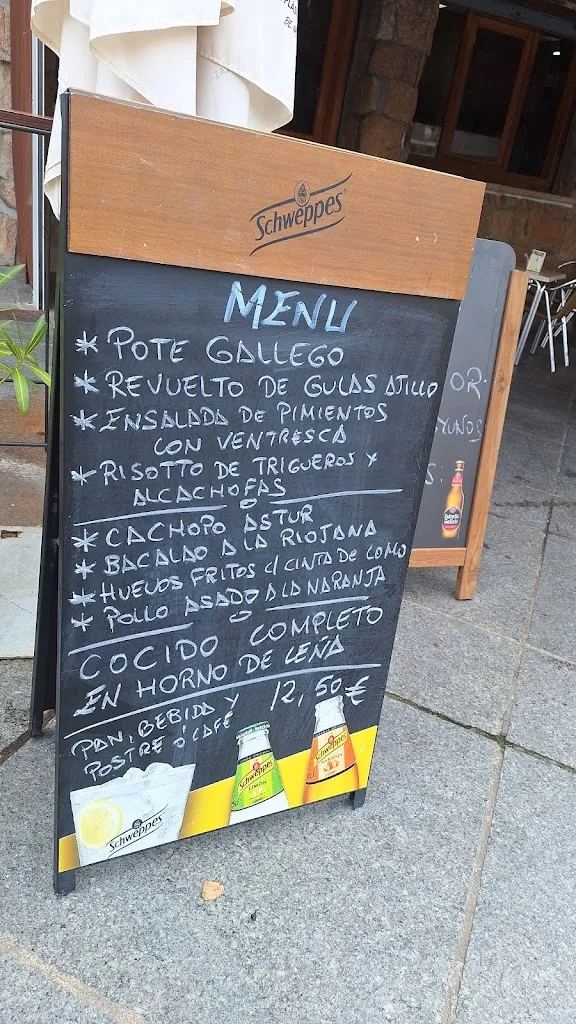 Schweppes
MENU
* POTE GALLEGO
* REVUELTO DE GULAS AJILLO
* ENSALADA DE PIMIENTOS
CON VENTRESCA
* RISOTTO DE TRIGUEROS Y
ALCACHOFAS
* CACHOPO ASTUR
* BACALAO A LA RIOJANA
* HUEVOS FRITOS C/ CINTA DE LOMO
* POLLO ASADO A LA NARANJA
COCIDO COMPLETO
EN HORNO DE LEÑA
PAN, BEBIDA Y 12,50€
POSTRE O' CAFÉ
Schweppes
LIMÓN
Schweppes
NARANJA
Schweppes
OR
S:
Estrella
Galicia